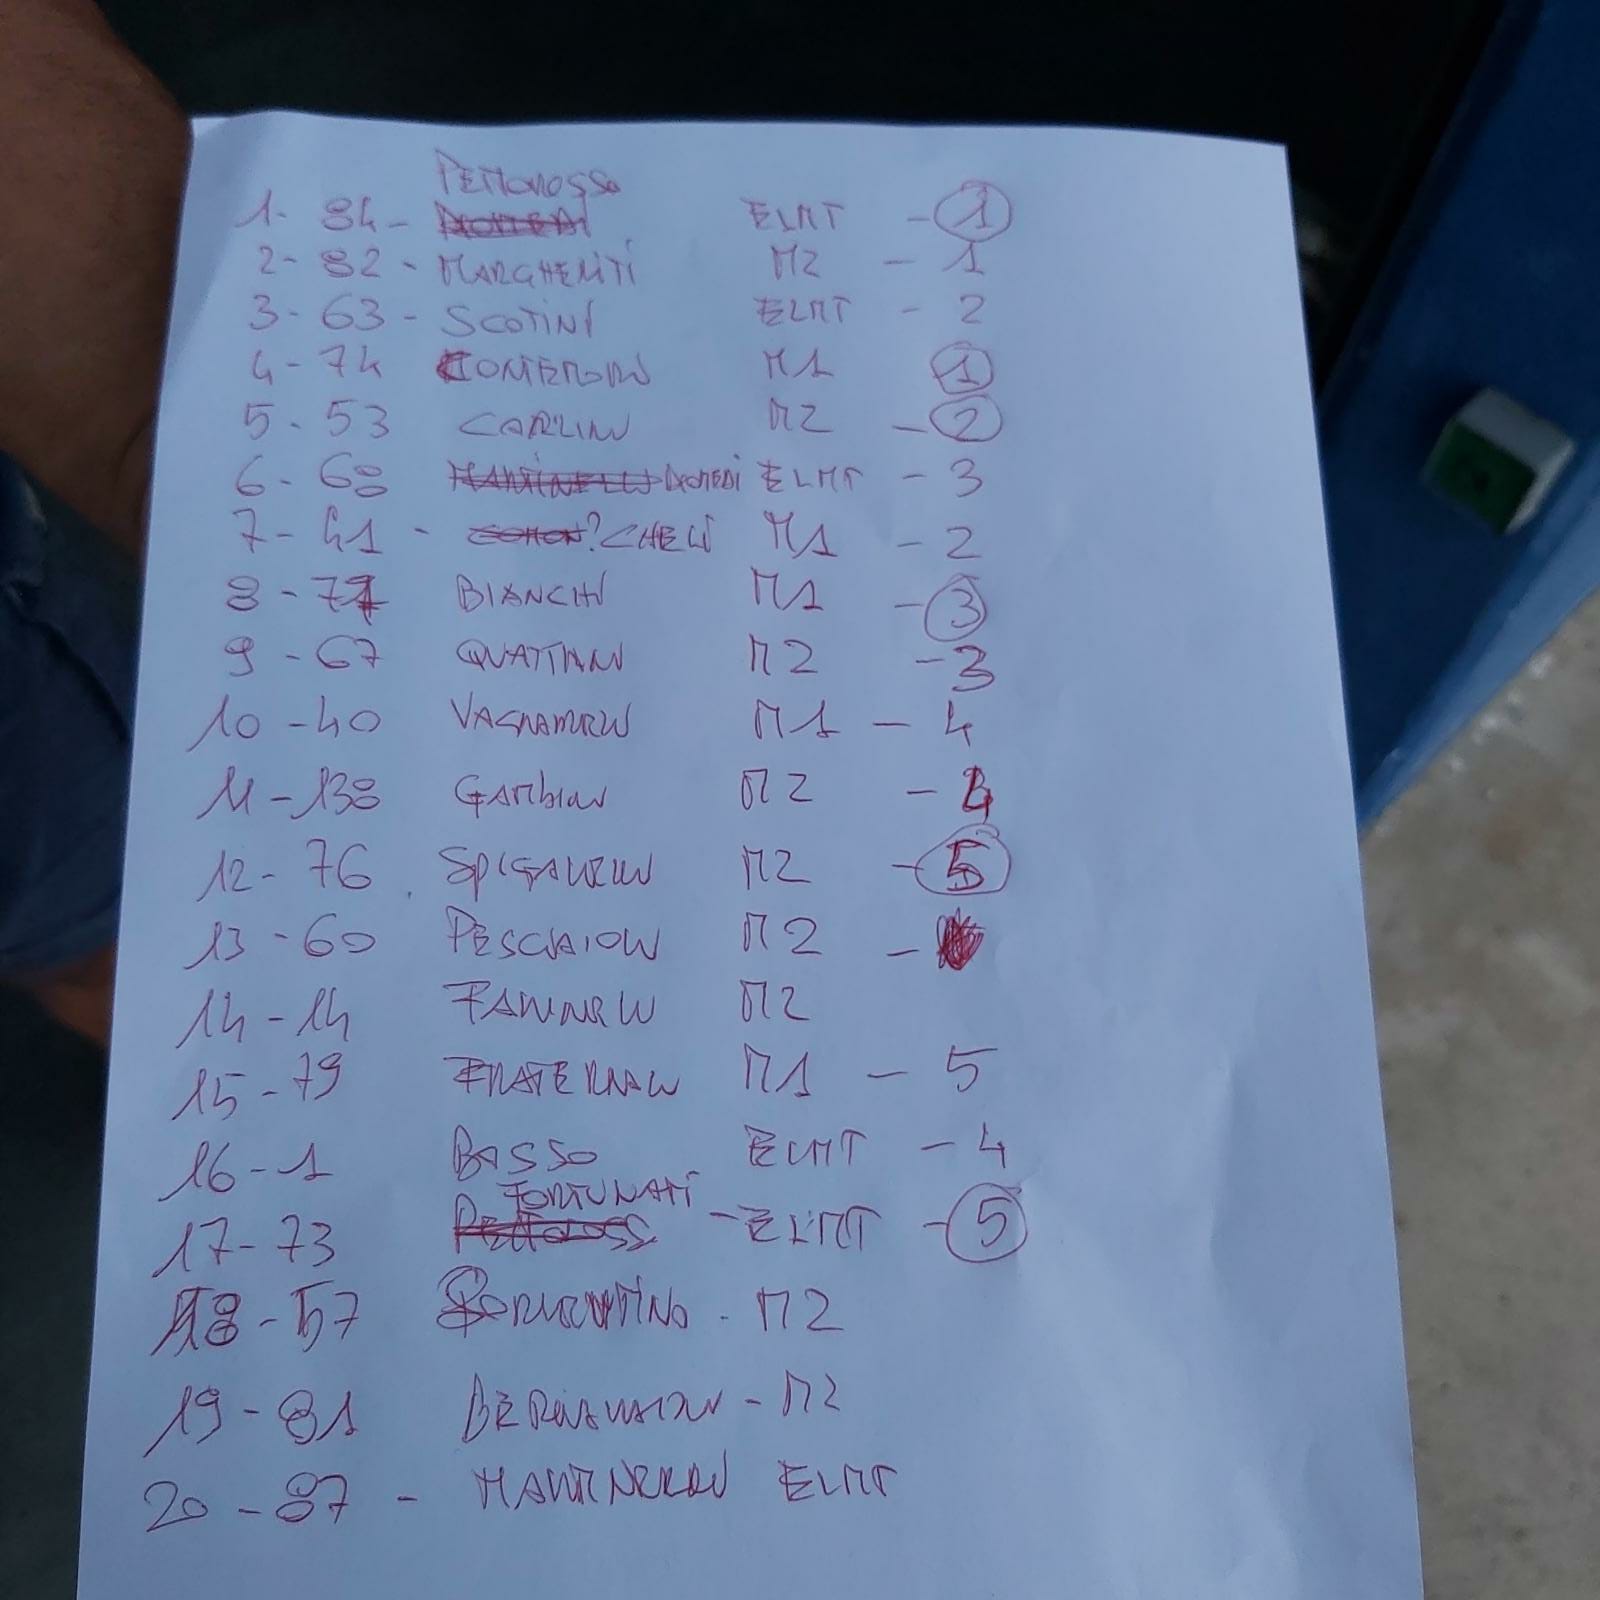 PETTOROSSO
1- 84 - ELMT - 1
2- 82 - MARGHERITI M2 - 1
3- 63 - SCOTINI ELMT - 2
4- 74 M1 1
5- 53 CARLINI M2 - 2
6- 68 ELMT - 3
7- 41 - ? CHELI M1 - 2
8- 71 BIANCHI M1 - 3
9 - 67 QUATTRINI M2 - 3
10 - 40 M1 - 4
11 - 138 GAMBINI M2 - 4
12- 76 M2 - 5
13 - 60 M2 -
14 - 14 M2
15 - 79 FRATERNALI M1 - 5
16 - 1 BASSO ELMT - 4
FORTUNATI
17- 73 - ELMT - 5
18 - 57 M2
19 - 81 - M2
20 - 87 - ELMT